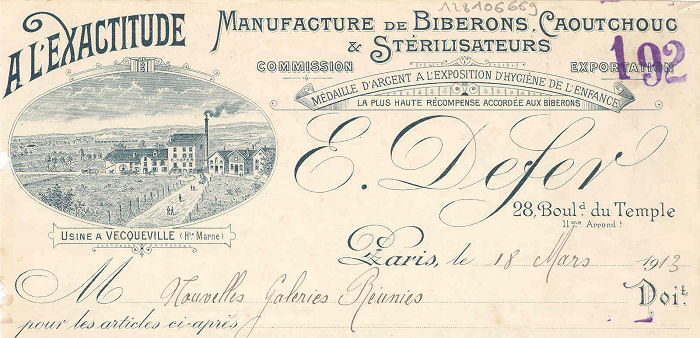 128106669
A L'EXACTITUDE
MANUFACTURE DE BIBERONS, CAOUTCHOUC
& STÉRILISATEURS
COMMISSION EXPORTATION
192
MÉDAILLE D'ARGENT A L'EXPOSITION D'HYGIÈNE DE L'ENFANCE
LA PLUS HAUTE RÉCOMPENSE ACCORDÉE AUX BIBERONS
E. Defer
28, Boul.d du Temple
11me Arrond.t
USINE A VECQUEVILLE (Hte Marne)
Paris, le 18 Mars 1913
M Nouvelles Galeries Réunies Doit
pour les articles ci-après